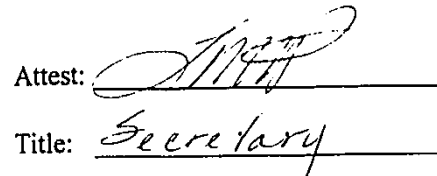 Attest:
Title: Secretary